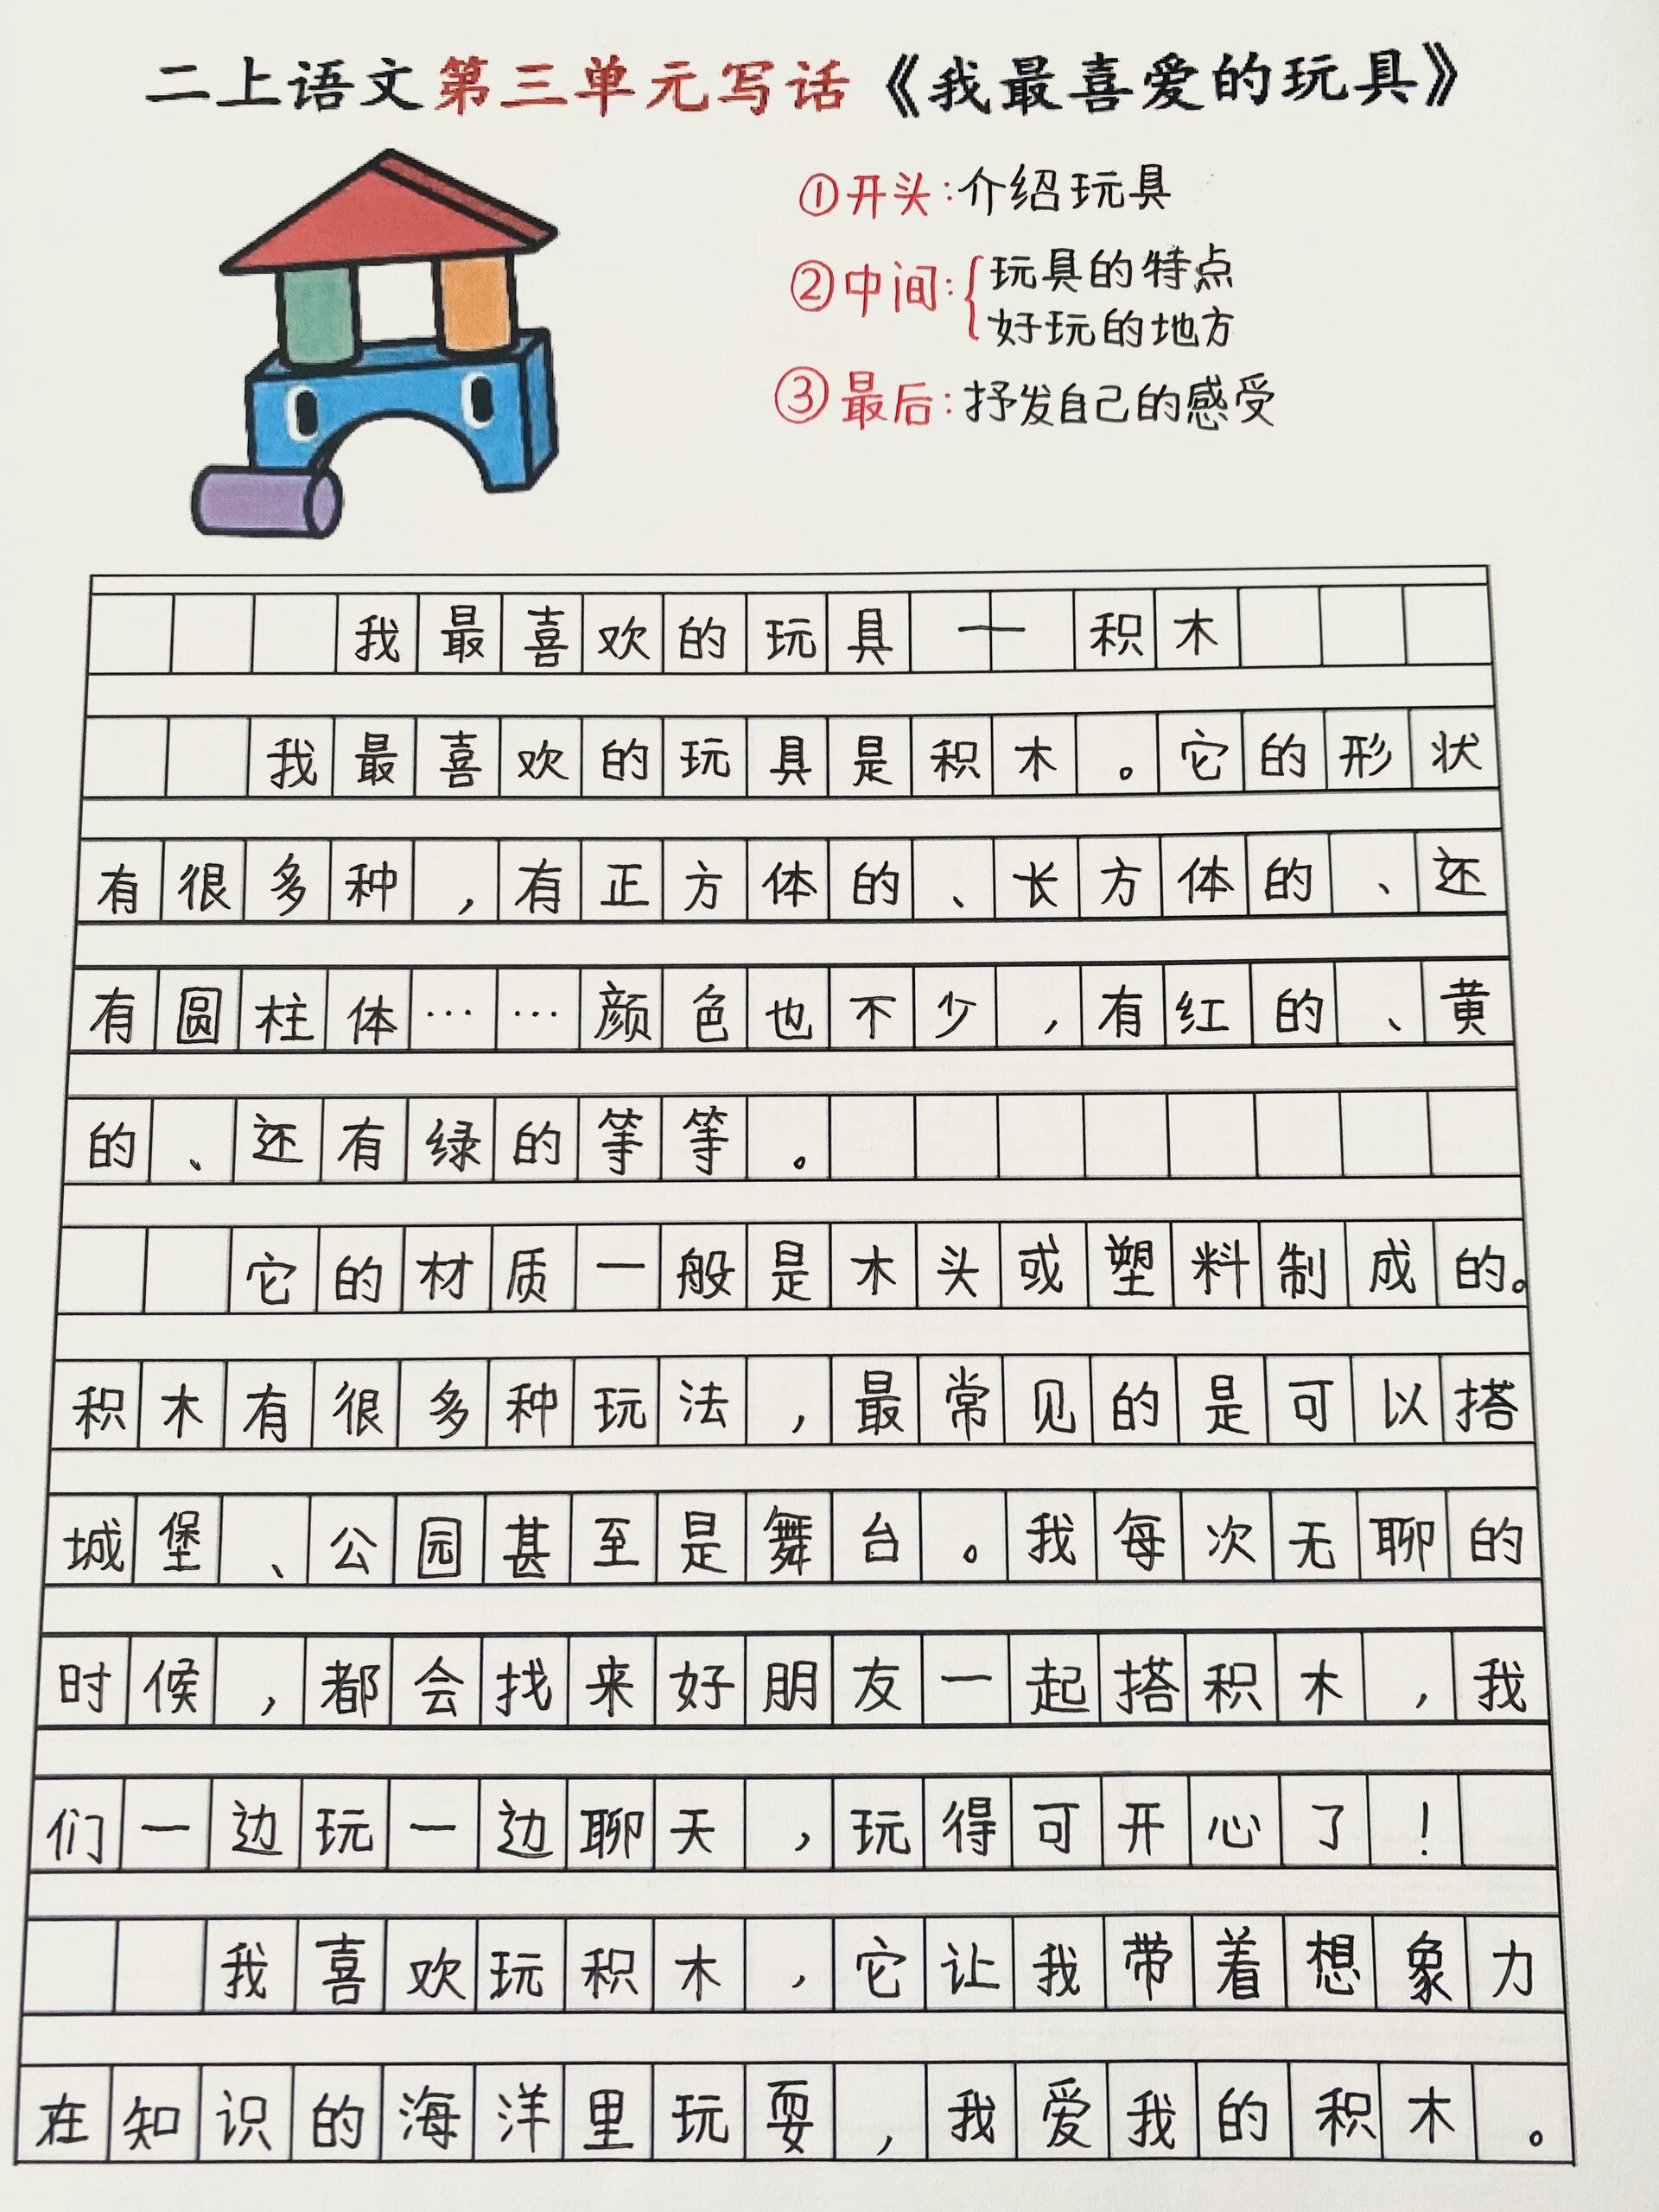 二上语文第三单元写话《我最喜爱的玩具》
①开头:介绍玩具
②中间:{玩具的特点
好玩的地方
③最后:抒发自己的感受
我最喜欢的玩具——积木
我最喜欢的玩具是积木。它的形状
有很多种,有正方体的、长方体的、还
有圆柱体……颜色也不少,有红的、黄
的、还有绿的等等。
它的材质一般是木头或塑料制成的。
积木有很多种玩法,最常见的是可以搭
城堡、公园甚至是舞台。我每次无聊的
时候,都会找来好朋友一起搭积木,我
们一边玩一边聊天,玩得可开心了!
我喜欢玩积木,它让我带着想象力
在知识的海洋里玩耍,我爱我的积木。